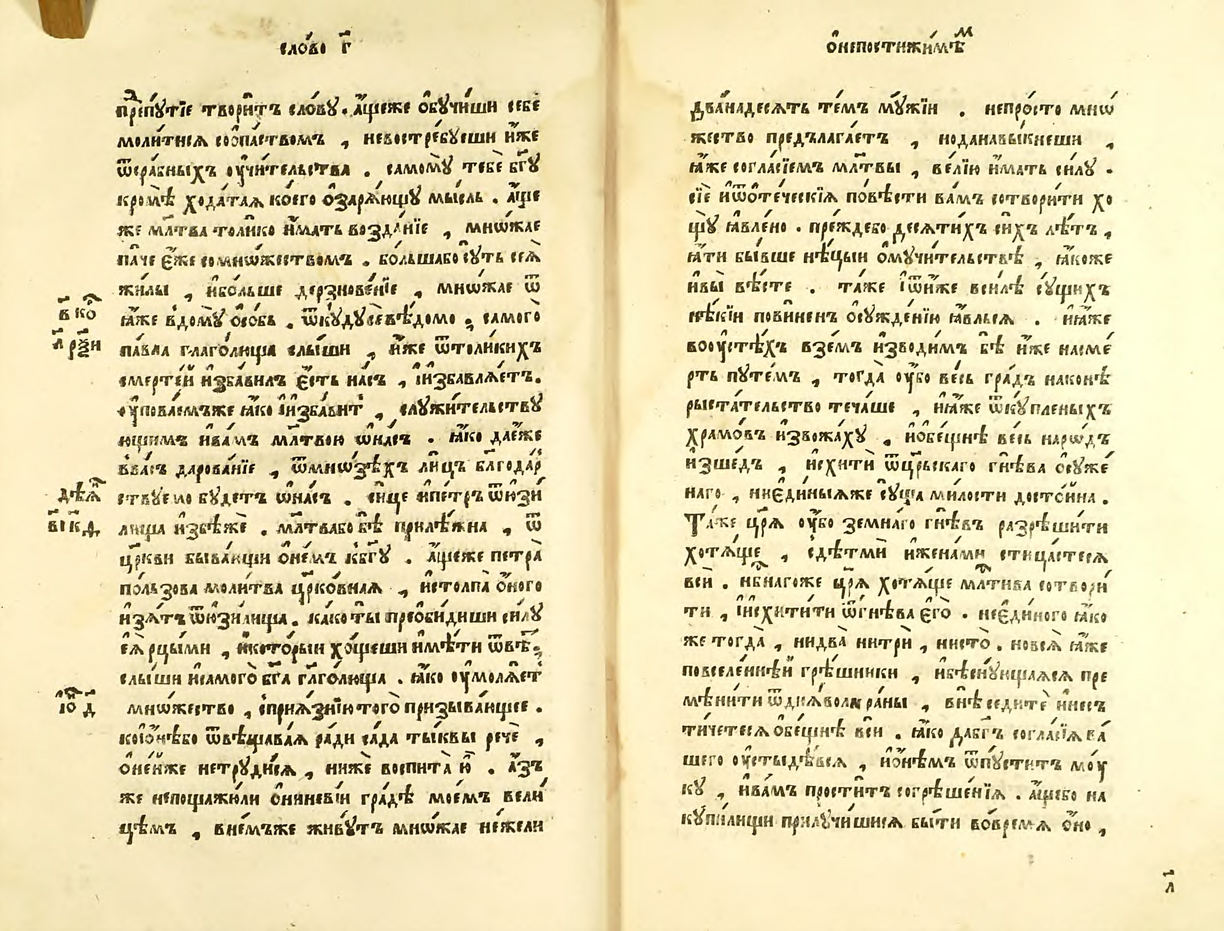 сло́во г҃
препꙋ́тїе твори́тъ сло́вꙋ. а҆́щеже ѻ҆бꙋчи́ши себѐ
моли́тисѧ соѻ҆па́ствомъ , невостре́бꙋеши и҆̀же
ѿсра́бныхъ ᲂу҆чи́тельства . самомꙋ̀ тебѐ бг҃ꙋ
кромѣ̀ хода́таѧ коего̀ ѻ҆зарѧ́ющꙋ мы́сль . а҆́ще
же мл҃тва толи́ко и҆́мать возда́нїе , мно́жае
па́че є҆́же сомно́жествомъ . бо́льшабо сꙋ́ть сеѧ̀
жи́лы , и҆бо́льше дерзнове́нїе , мно́жае ѿ
ꙗ҆́же вдомꙋ̀ ѻ҆со́бь . ѿкꙋ́дꙋсевѣ́домо ; самого̀
па́вла глаго́люща слы́ши , и҆́же ѿтоли́кихъ
смерте́й и҆зба́вилъ є҆́сть на́съ , і҆избавлѧ́етъ.
ᲂу҆пова́емъже ꙗ҆́ко і҆изба́витъ , слꙋжи́тельствꙋ
ющимъ и҆ва́мъ мл҃твою ѡ҆на́съ . ꙗ҆́ко дае́же
вва́съ дарова́нїе , ѿмно́зѣхъ ли́цъ благодар
ствꙋемо бꙋ́детъ ѡ҆на́съ . си́це и҆пе́тръ ѿи҆зи
лища и҆збѣ́же . мл҃твабо бѣ̀ прилѣ́жна , ѿ
цр҃кви быва́ющи ѻ҆не́мъ кбг҃ꙋ . а҆́щеже петра̀
по́льзова моли́тва цр҃ко́внаѧ , и҆столпа̀ ѻ҆́ного
и҆зѧ́тъ ѿи҆зи́лища. ка́ко ты̀ преоби́диши си́лꙋ
є҆ѧ̀ рцы́ми , и҆кото́рыи хо́щеши и҆мѣ́ти ѿвѣ́.
слы́ши и҆самого̀ бг҃а глаго́люща . ꙗ҆́ко ᲂу҆молѧ́ет
мно́жество , сприѧ́знїю того̀ призыва́ющее .
коі҆ѡ́нѣбо ѿвѣщава́ѧ ра́ди са́да ты́квы речѐ ,
ѻ҆не́йже нетрꙋди́сѧ , нижѐ воспита̀ ю҆̀ . а҆́зъ
же непощажꙋ́ли ѻ҆ниневі́и гра́дѣ мое́мъ вели
цѣмъ , вне́мъже живꙋ́тъ мно́жае не́жели
в҃ ко
а҃ рч҃и
дѣѧ
в҃і к҃д
іѡ д҃
ѻ҆непостижи́мѣм
два́надесѧть те́мъ мꙋ́жїи . непро́сто мно
жество предлага́етъ , ноданавы́кнеши ,
ꙗ҆́же согла́сїемъ мл҃твы , ве́лїю и҆́мать си́лꙋ .
сїѐ и҆ѿѻте́ческїѧ по́вѣсти ва́мъ сотвори́ти хо
щꙋ̀ ꙗ҆вле́но . пре́ждебо десѧти́хъ си́хъ лѣ́тъ ,
ꙗ҆́ти бы́вше нѣ́цыи ѻ҆мꙋчи́тельствѣ , ꙗ҆́коже
и҆вы̀ вѣ́сте . та́же і҆ѿи҆́же вси́лѣ сꙋ́щихъ
нѣ́кїи пови́ненъ ѻ҆сꙋжде́нїю ꙗ҆ви́лсѧ . и҆ꙗ҆́же
воᲂу҆стѣ́хъ взе́мъ и҆зводи́мъ бѣ̀ и҆́же насме́
рть пꙋте́мъ , тогда̀ ᲂу҆́бо ве́сь гра́дъ наконѣ
рыста́тельство теча́ше , и҆ꙗ҆́же ѿкꙋ́пленыхъ
хра́мовъ и҆звожа́хꙋ , и҆ѻ҆́бещнѣ ве́сь наро́дъ
и҆зше́дъ , и҆схи́ти ѿца́рьскаго гнѣ́ва ѻ҆сꙋже́
наго , ниє҆ди́ныѧже сꙋ́ща ми́лости досто́ина .
Та́же цр҃ѧ̀ ᲂу҆́бо земна́го гнѣ́въ разрѣши́ти
хотѧ́ще , сдѣтмѝ и҆жена́ми стица́стесѧ
всѝ . нбⷭ҇нагоже цр҃ѧ̀ хотѧ́ще млⷭ҇тива сотвори́
ти , і҆исхити́ти ѿгнѣ́ва є҆гѡ̀ . неє҆ди́ного ꙗ҆́ко
же тогда̀ , нидва̀ нитрѝ , нисто̀ . новсѧ̀ ꙗ҆́же
повселе́ннѣй грѣ́шники , и҆бѣснꙋ́ющаѧсѧ пре
мѣни́ти ѿдиѧ́вола ра́ны , внѣ̀ седитѐ и҆нес
тичетесѧ̀ ѻ҆́бещнѣ всѝ . ꙗ҆́ко дабг҃ъ согла́сїѧ ва́
шего ᲂу҆стыдѣ́всѧ , и҆ѻ҆нѣ́мъ ѿпꙋ́ститъ мꙋ́
кꙋ , и҆ва́мъ прости́тъ согрѣше́нїѧ . а҆́щебо на
кꙋпи́лищи прилꙋчи́шисѧ бы́ти вовре́мѧ ѻ҆́но ,
л҃